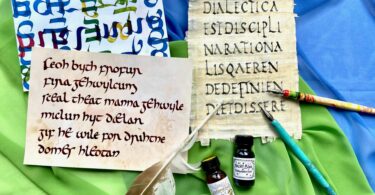 feoh byth frofur
fira gehwylcum
sceal theah manna gehwylc
miclun hyt dælan
gif he wile for drihtne
domes hleotan
DIALECTICA
ESTDISCIPLI
NARATIONA
LISQAEREN
DEDEFINIEN
DIETDISSERE